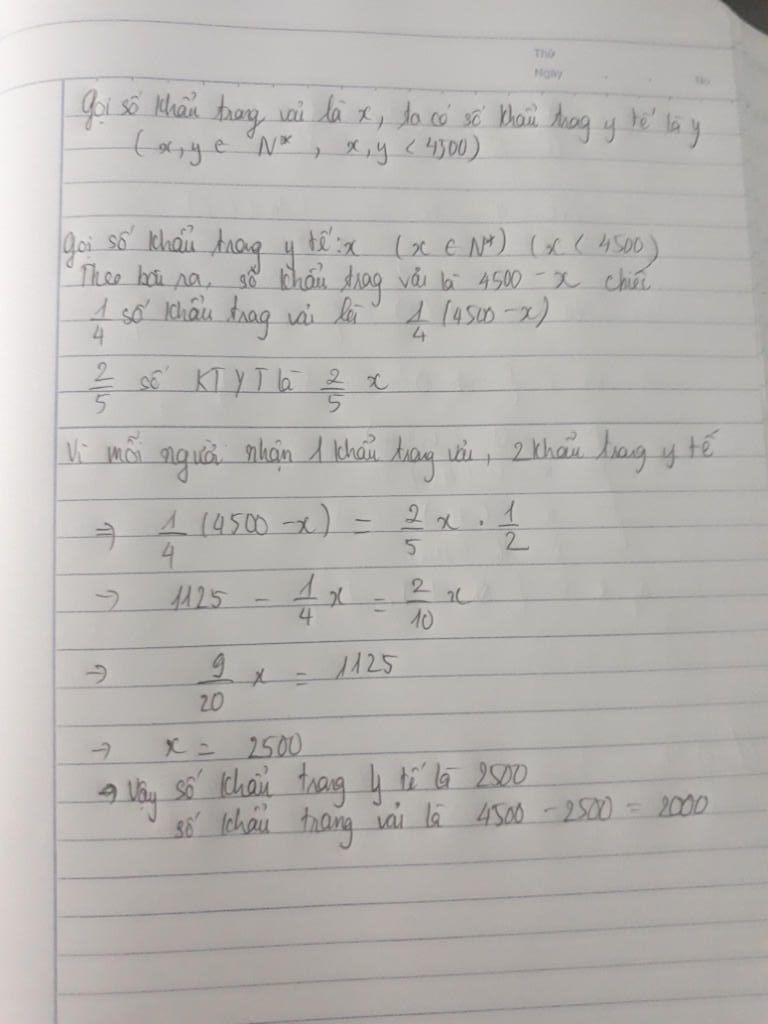 Thứ
Ngày No
Gọi số khẩu trang vải là x, ta có số khẩu trag y tế là y
( x, y ∈ N*, x, y < 4500)
Gọi số khẩu trang y tế: x (x ∈ N*) (x < 4500)
Theo bài ra, số khẩu trag vải là 4500 - x chiếc
1/4 số khẩu trag vải là 1/4 (4500 - x)
2/5 số KTYT là 2/5 x
Vì mỗi người nhận 1 khẩu trang vải, 2 khẩu trang y tế
⇒ 1/4 (4500 - x) = 2/5 x . 1/2
→ 1125 - 1/4 x = 2/10 x
→ 9/20 x = 1125
→ x = 2500
→ Vậy số khẩu trang y tế là 2500
số khẩu trang vải là 4500 - 2500 = 2000